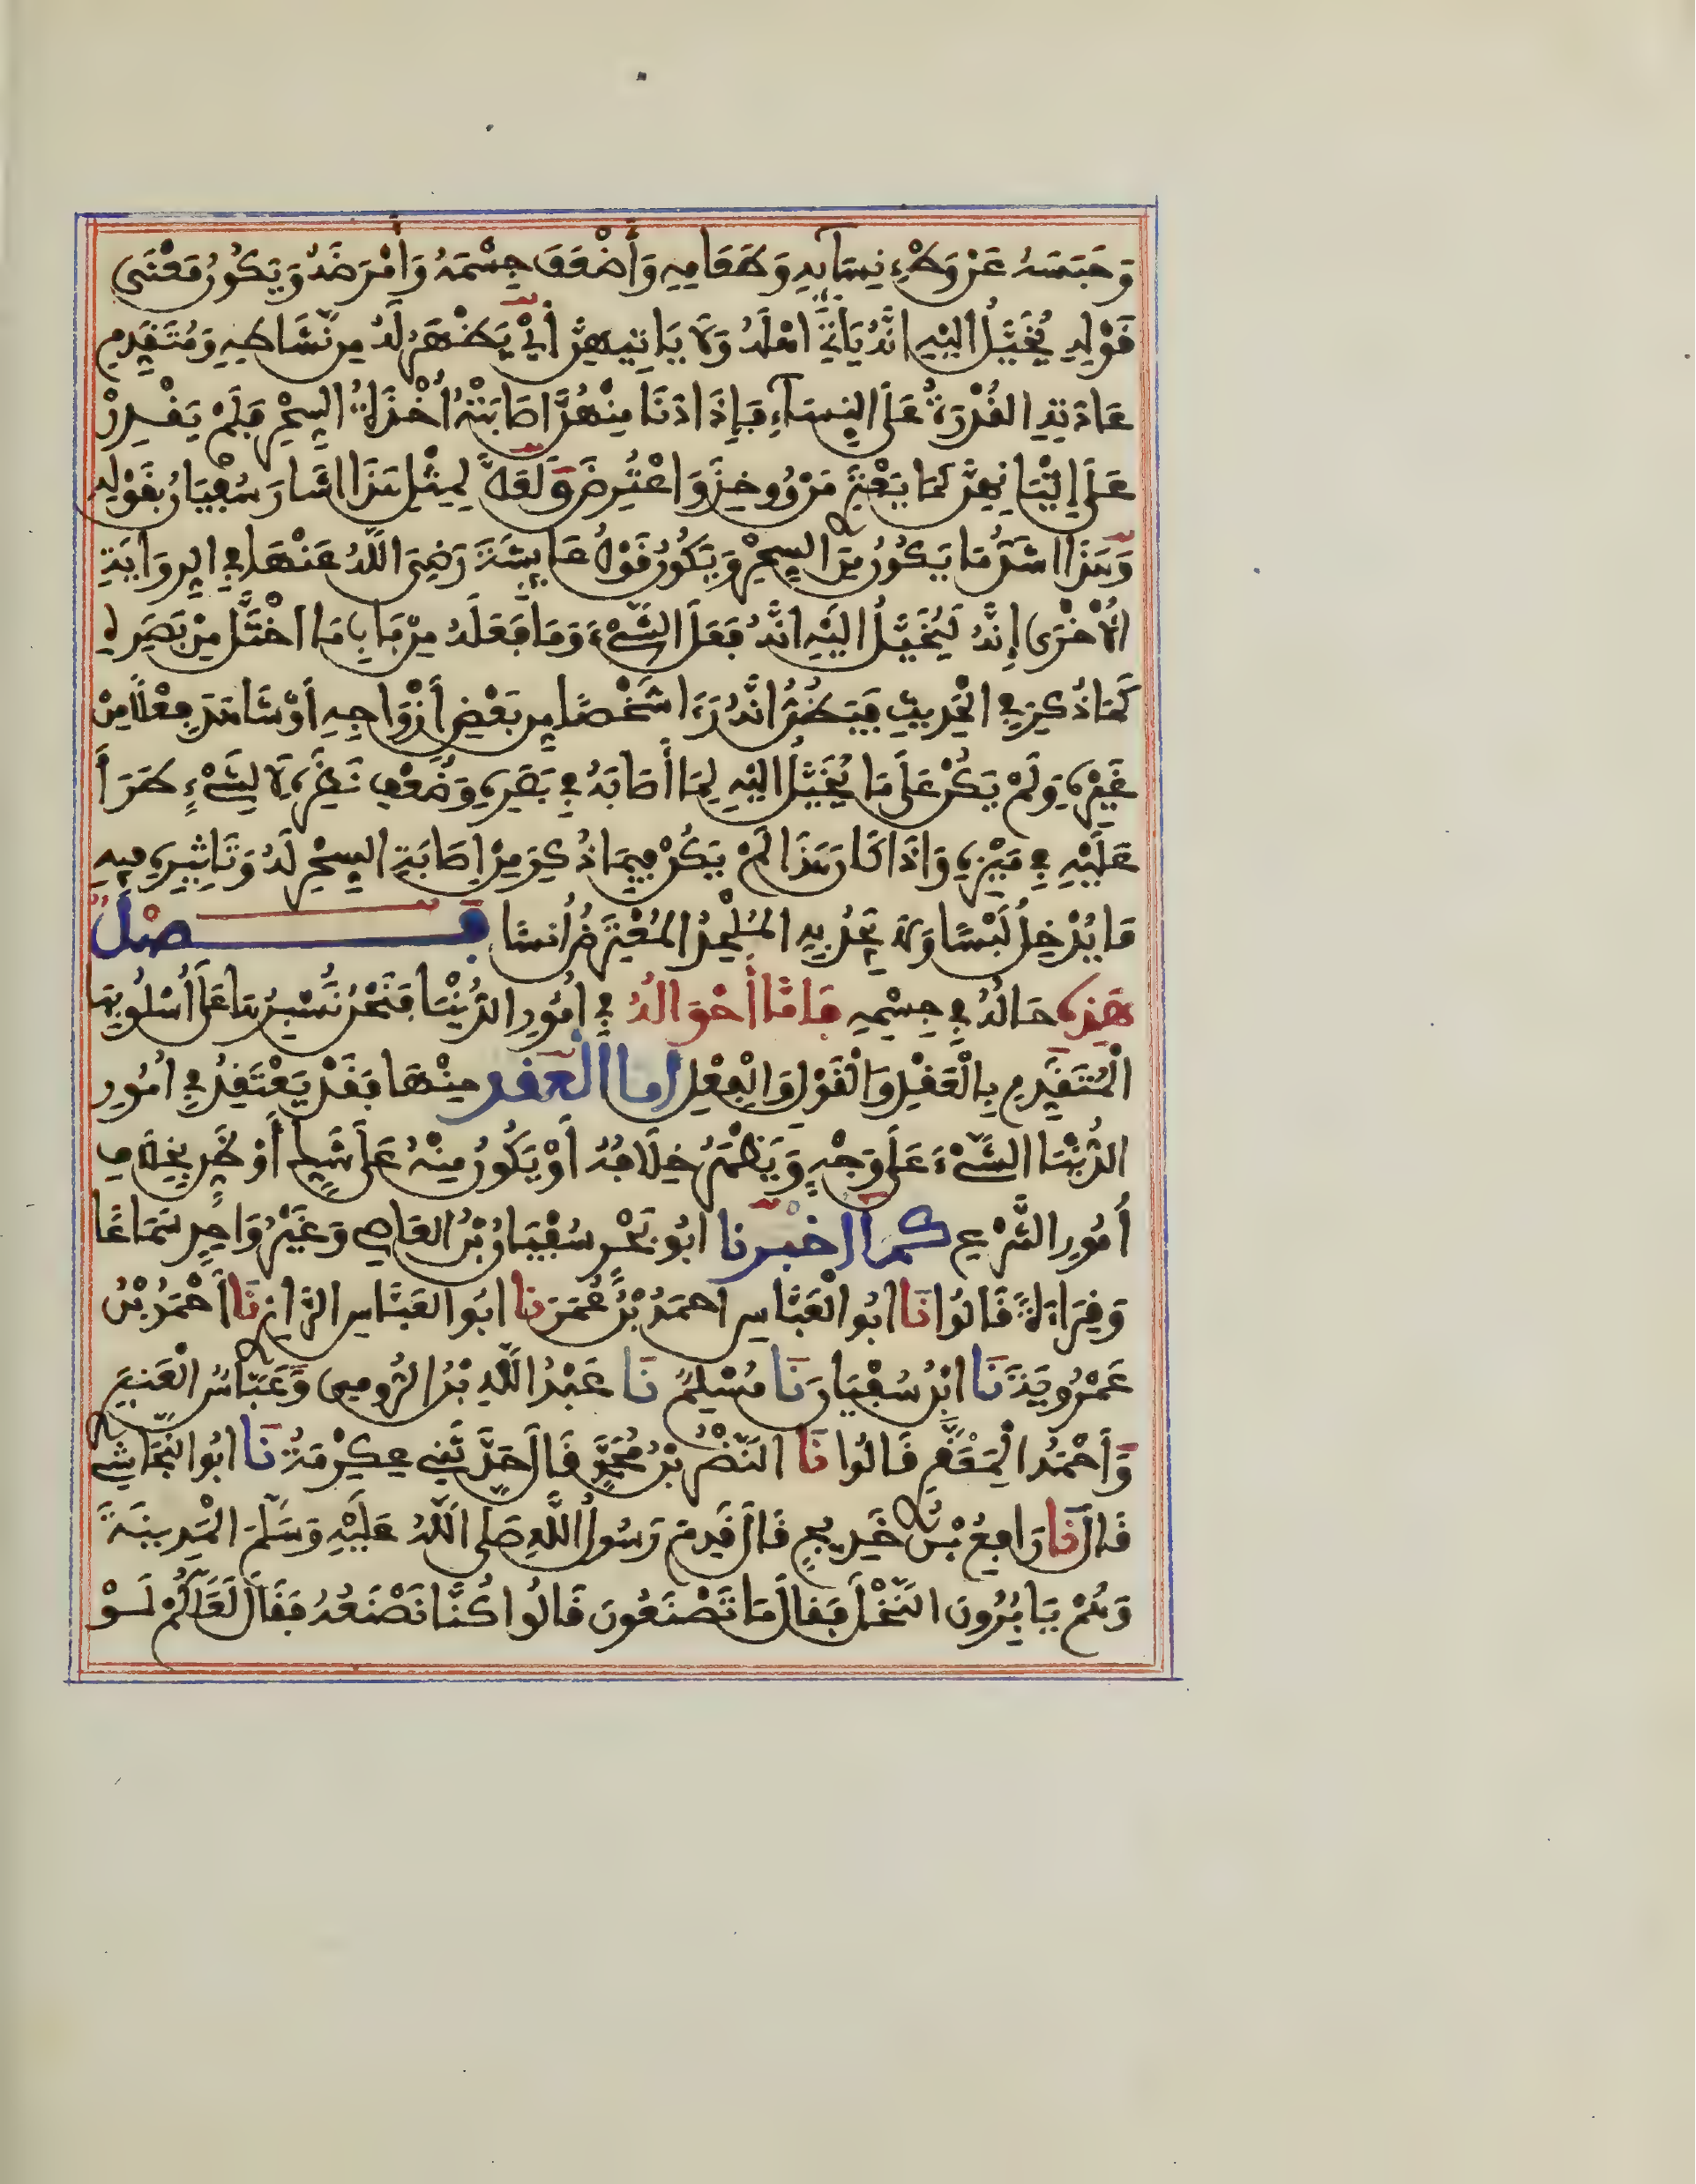 وَحَبَسَهُ عَنْ وَطْءِ نِسَآئِهِ وَطَعَامِهِ وَأَضْعَفَ جِسْمَهُ وَأَمْرَضَهُ وَيَكُونُ مَعْنَى
قَوْلِهِ يُخَيَّلُ إلَيْهِ انَّهُ يَأتِي اهْلَهُ وَلَا يَاتِيهِنَّ أَيْ يَظْهَرُ لَهُ مِن نَّشَاطِهِ وَمُتَقَدِّمِ
عَادَتِهِ القُدْرَةُ عَلَى النِّسَآءِ فَإِذَا دَنَا مِنْهُنَّ اصَابَتْهُ أُخْذَةُ السِّحْرِ فَلَمْ يَقْدِرْ
عَلَى إِتْيَانِهِنَّ كَمَا يَعْتَرِي مَنْ أُوخِذَ وَاعْتُرِضَ وَلَعَلَّهُ لِمِثْلِ هَذَا اشَارَ سُفْيَانُ بِقَوْلِهِ
وَهَذَا اشَدُّ مَا يَكُونُ مِنَ السِّحْرِ وَيَكُونُ قَوْلُ عَايِشَةَ رَضِيَ اللَّهُ عَنْهَا فِي الرِّوَايَةِ
الُاخْرَى إِنَّهُ لَيُخَيَّلُ الَيْهِ انَّهُ فَعَلَ الشَّيْءَ وَمَا فَعَلَهُ مِنْ بَابِ مَا اخْتَلَّ مِنْ بَصَرِهِ
كَمَا ذُكِرَ فِي الْحَدِيثِ فَيَظُنُّ انَّهُ رَءَا شَخْصًا مِن بَعْضِ أَزْوَاجِهِ أَوْ شَاهَدَ فِعْلًا مِنْ
غَيْرِهِ وَلَمْ يَكُنْ عَلَى مَا يُخَيَّلُ الَيْهِ لِمَا أَصَابَهُ فِي بَصَرِهِ وَضُعْفِ نَظَرِهِ لَا لِشَيْءٍ طَرَأَ
عَلَيْهِ فِي مَيْزِهِ وَاذَا كَانَ هَذَا لَمْ يَكُنْ فِيمَا ذُكِرَ مِنْ إِصَابَةِ السِّحْرِ لَهُ وَتَاثِيرِهِ فِيهِ
مَا يُدْخِلُ لَبْسًا وَلَا يَجِدُ بِهِ المُلْحِدُ المُعْتَرِضُ أُنسًا فَصْلٌ
هَذِهِ حَالُهُ فِي جِسْمِهِ فَامَّا أَحْوَالُهُ فِي امُورِ الدُّنْيَا فَنَحْنُ نَسْبُرُهَا عَلَى أُسْلُوبِهَا
الْمُتَقَدِّمِ بِالْعَقْدِ وَالْقَوْلِ وَالْفِعْلِ اما العقد مِنْهَا فَقَدْ يَعْتَقِدُ فِي امُورِ
الدُّنْيَا الشَّيْءَ عَلَى وَجْهٍ وَيَظْهَرُ خِلَافُهُ أَوْ يَكُونُ مِنْهُ عَلَى شَكٍّ أَوْ ظَنٍّ بِخِلَافِ
أُمُورِ الشَّرْعِ كما اخبرنا ابُو بَحْرٍ سُفْيَانُ بْنُ العَاصِي وَغَيْرُ وَاحِدٍ سَمَاعًا
وَقِرَاءَةً قَالُوا نَا ابُو الْعَبَّاسِ احمَدُ بْنُ عُمَرَ نَا ابُو العَبَّاسِ الرَّازِي نَا أَحْمَدُ بْنُ
عَمْرُويَهْ نَا ابْنُ سُفْيَانَ نَا مُسْلِمٌ نَا عَبْدُ اللَّهِ بْنُ الرُّومِي وَعَبَّاسُ الْعَنبَرِي
وَأَحْمَدُ الْمَعْقِرِي قَالُوا نَا النَّضْرُ بْنُ مُحَمَّدٍ قَالَ حَدَّثَنِي عِكْرِمَةُ نَا ابُو النَّجَاشِي
قَالَ نَا رَافِعُ بْنُ خَدِيجٍ قَالَ قَدِمَ رَسُولُ اللَّهِ صَلَى اللَّهُ عَلَيْهِ وَسَلَّمَ المَدِينَةَ
وَهُمْ يَابُرُونَ النَّخْلَ فَقَالَ مَا تَصْنَعُونَ قَالُوا كُنَّا نَصْنَعُهُ فَقَالَ لَعَلَّكُمْ لَوْ